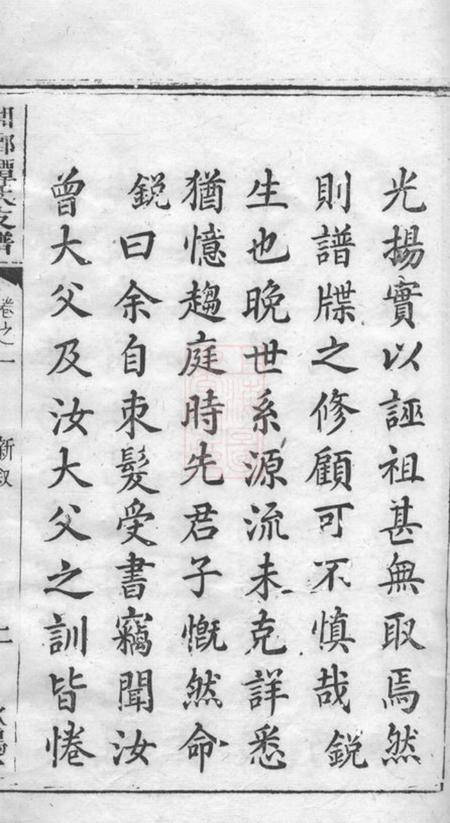 光揚實以誣祖甚無取焉然
則譜牒之修顧可不慎哉銳
生也晚世系源流未克詳悉
猶憶趨庭時先君子慨然命
銳曰余自束髮受書竊聞汝
曾大父及汝大父之訓皆惓
譚氏支譜
卷之一
新叙